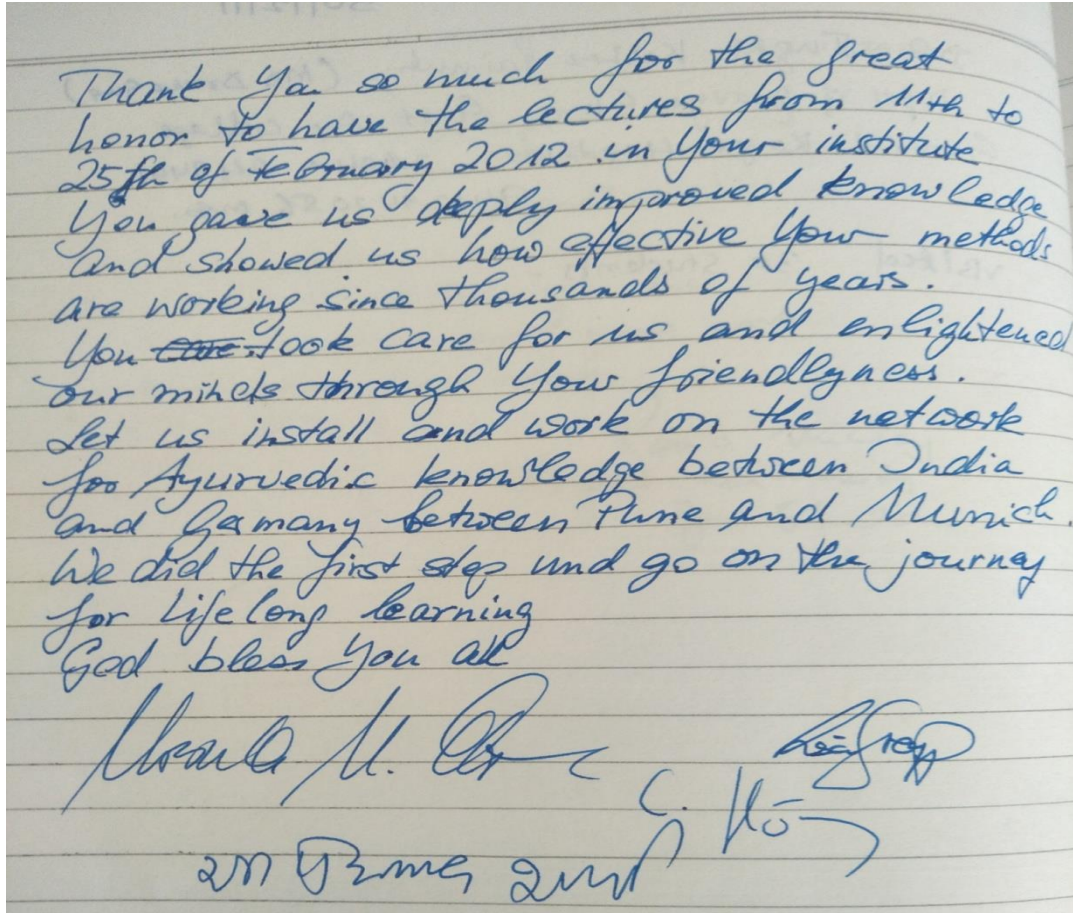 Thank You so much for the great
honor to have the lectures from 11th to
25th of February 2012 in Your institute
You gave us deeply improved knowledge
and showed us how effective Your methods
are working since thousands of years.
You took care for us and enlightened
our minds through Your friendlyness.
Let us install and work on the network
for Ayurvedic knowledge between India
and Germany between Pune and Munich.
We did the first step und go on the journey
for lifelong learning
God bless You all
Ursula M.
C.